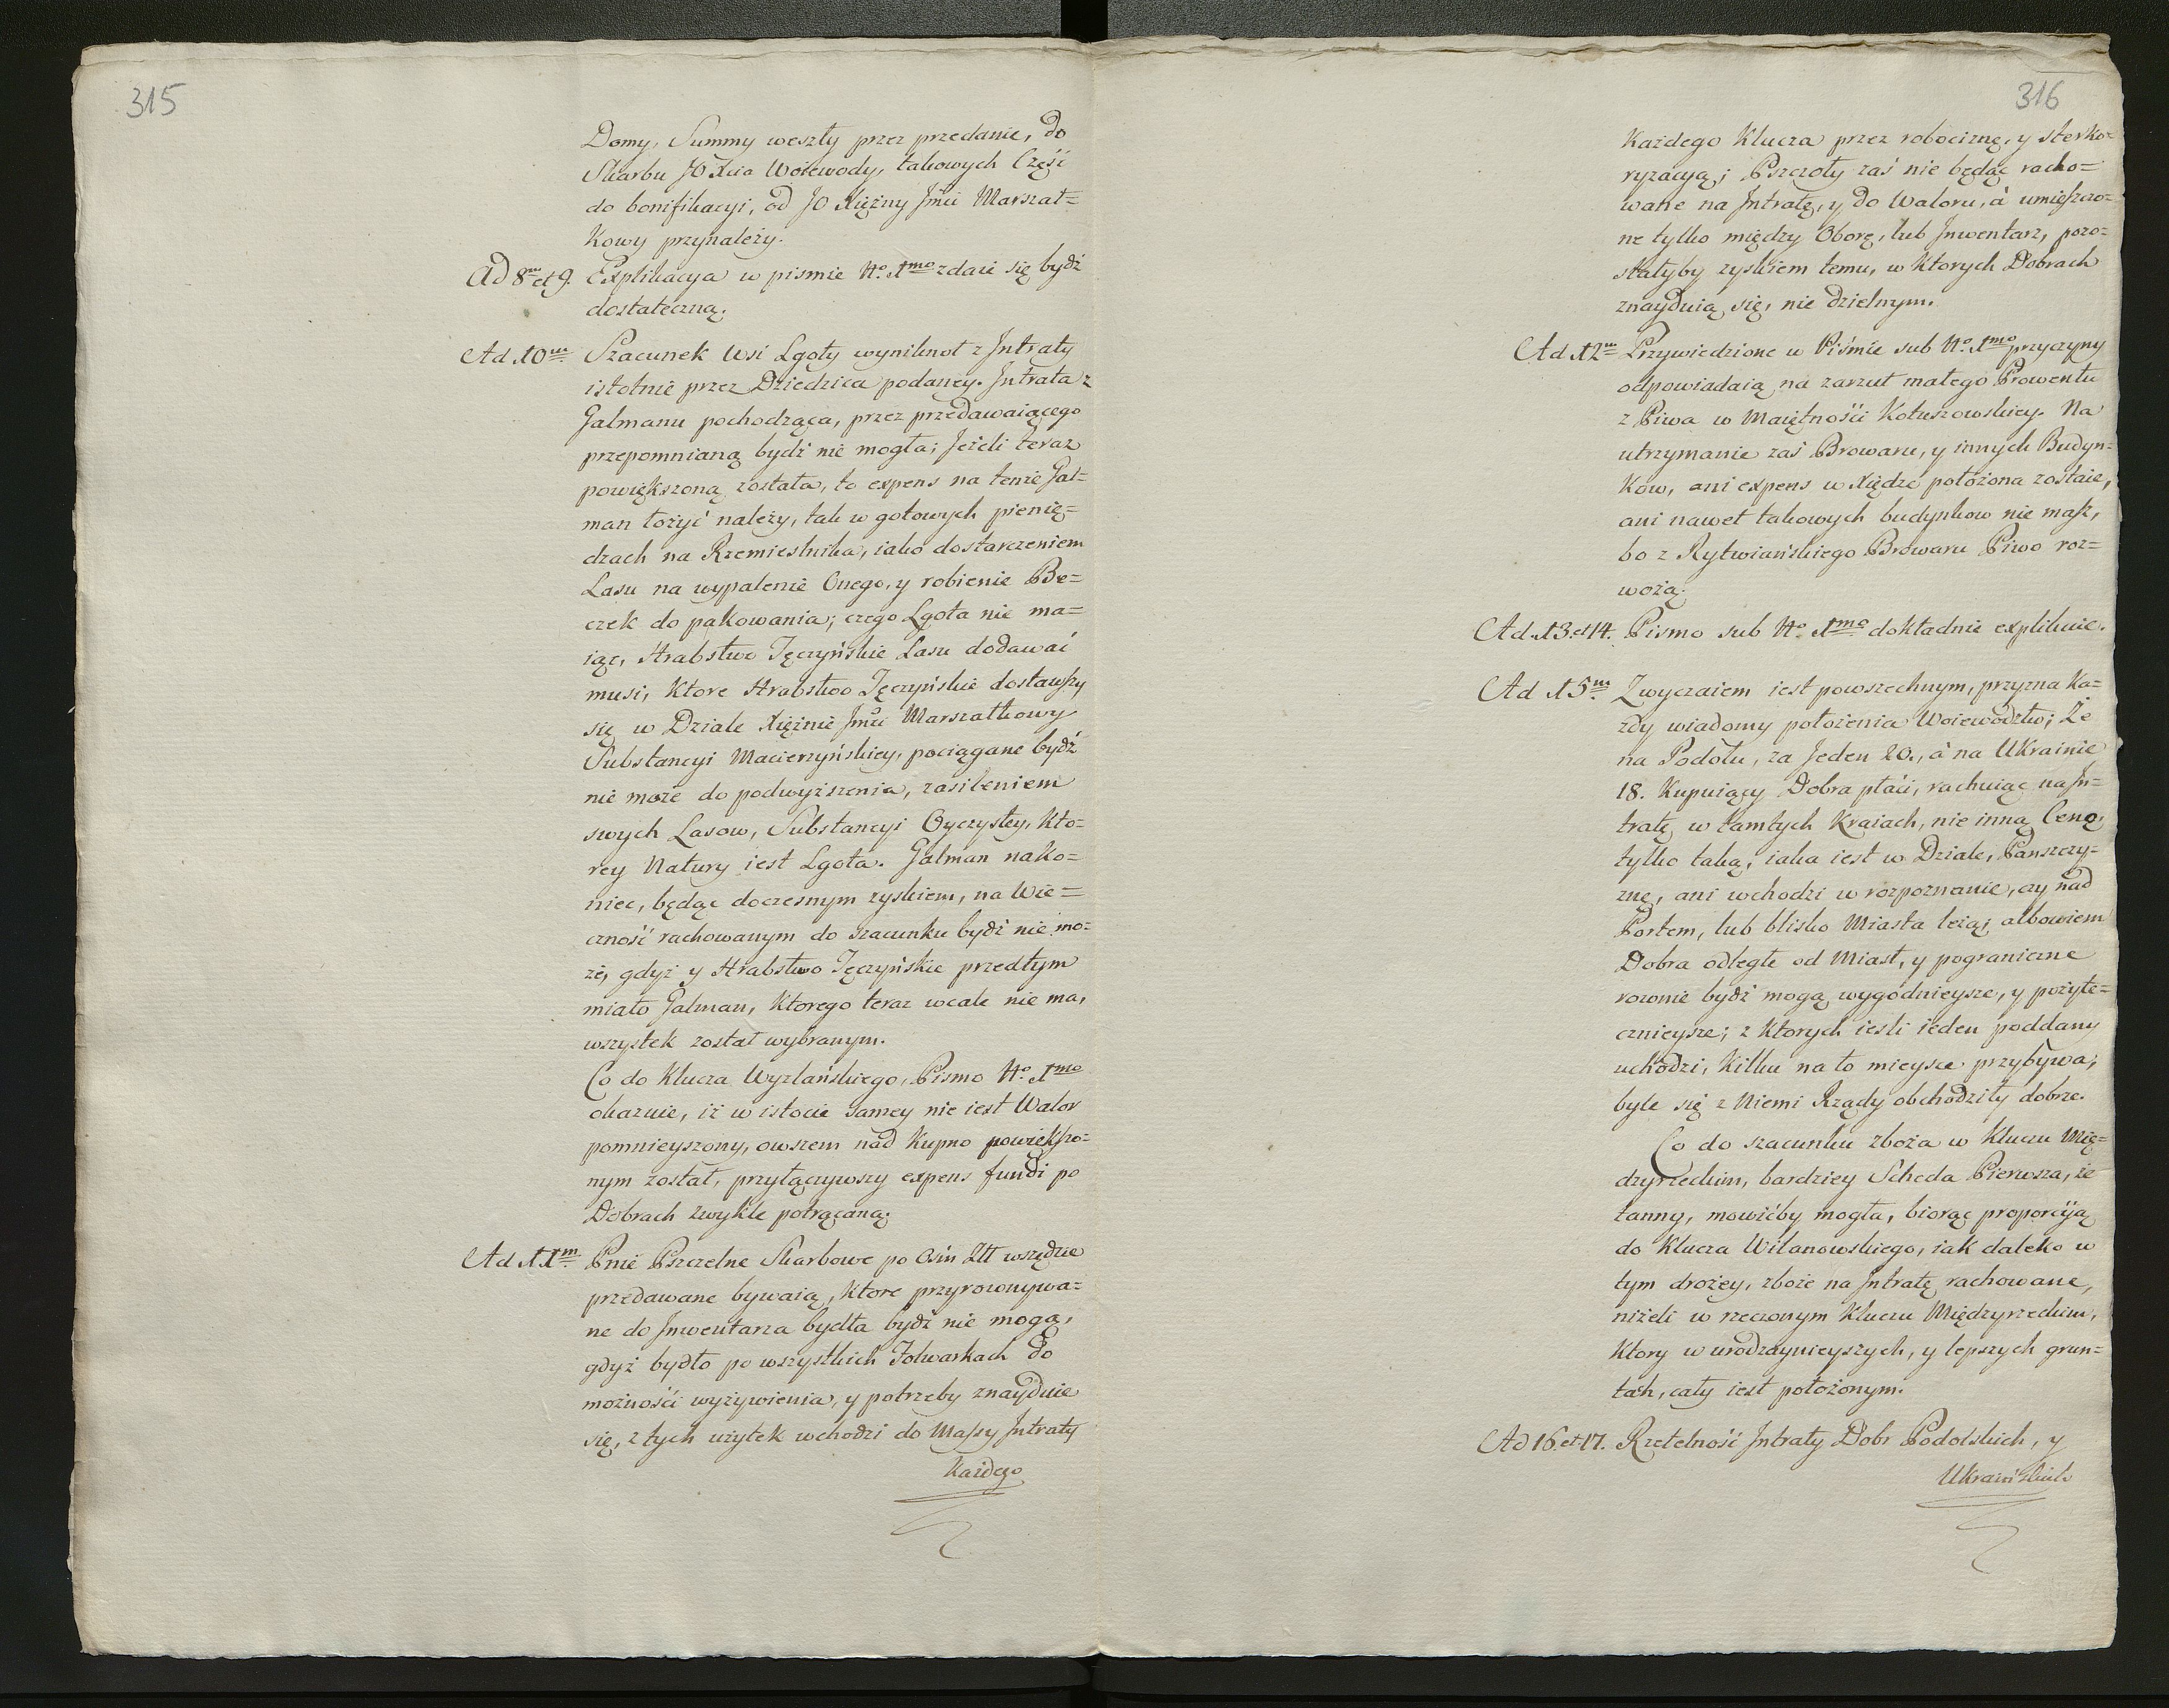 315
Domy, Summy weszły przez przedanie, do
Skarbu JO Xcia Woiewody, takowych Część
do bonifikacyi, od JO Xiężny Jmci Marszał=
kowy przynależy.
Ad 8m et 9. Explikacya w pismie No. 1mo zdaie się bydź
dostateczną.
Ad 10m. Szacunek Wsi Lgoty wyniknoł z Intraty
istotnie przez Dziedzica podaney. Intrata z
Galmanu pochodząca, przez przedawaiącego
przepomnianą bydź nie mogła; Jeżeli teraz
powiększoną została, to expens na tenże Gal=
man łożyć należy, tak w gotowych pienią=
dzach na Rzemieslnika, iako dostarczeniem
Lasu na wypalenie Onego, y robienie Be=
czek do pakowania; czego Lgota nie ma=
iąc, Hrabstwo Tęczyńskie Lasu dodawać
musi, Ktore Hrabstwo Tęczyńskie dostawszy
się w Dziale Xiężnie Jmci Marszałkowy
Substancyi Macierzyńskiey, pociągane bydź
nie może do podwyższenia, zasileniem
swych Lasow, Substancyi Oyczystey, Kto=
rey Natury iest Lgota. Galman nako=
niec, będąc doczesnym zyskiem, na Wie=
czność rachowanym do szacunku bydź nie mo=
że, gdyż y Hrabstwo Tęczyńskie przedtym
miało Galman, Ktorego teraz wcale nie ma,
wszystek został wybranym.
Co do Klucza Wyzlańskiego, Pismo No. 1mo
okazuie, iż w istocie samey nie iest Walor
pomnieyszony, owszem nad Kupno powiększo=
nym został, przyłączywszy expens fundi po
Dobrach zwykle potrącaną.
Ad 11m. Pnie Pszczelne Skarbowe po Osm Złł wszędzie
przedawane bywaią, Ktore przyrownywa=
ne do Inwentarza bydła bydź nie mogą,
gdyż bydło po wszystkich Folwarkach do
możności wyżywienia, y potrzeby znayduie
się, z tych użytek wchodzi do Massy Intraty
Każdego
316
Każdego Klucza przez robociznę, y sterko=
ryzacyą; Pszczoły zaś nie będąc racho=
wane na Intratę, y do Waloru, a umieszczo=
ne tylko między Oborę, lub Inwentarz, pozo=
stałyby zyskiem temu, w Ktorych Dobrach
znayduią się, nie dzielnym.
Ad 12m. Przywiedzione w Piśmie sub No. 1mo przyczyny
odpowiadaią na zarzut małego Prowentu
z Piwa w Maiętności Kotuszowskiey. Na
utrzymanie zaś Browaru, y innych Budyn=
kow, ani expens w Xiędze położona zostaie,
ani nawet takowych budynkow nie masz,
bo z Rytwiańskiego Browaru Piwo roz=
wożą.
Ad 13. et 14. Pismo sub No. 1mo dokładnie explikuie.
Ad 15m. Zwyczaiem iest powszechnym, przyzna Ka=
żdy wiadomy położenia Woiewodztw; Że
na Podolu, za Jeden 20., a na Ukrainie
18. Kupuiący Dobra płaci, rachuiąc na In=
tratę w tamtych Kraiach, nie inną Ceną,
tylko taką, iaka iest w Dziale, Panszczy=
znę, ani wchodzi w rozpoznanie, czy nad
Portem, lub blisko Miasta leżą; albowiem
Dobra odległe od Miast, y pograniczne
rownie bydź mogą wygodnieysze, y pożyte=
cznieysze; z Ktorych iesli ieden poddany
uchodzi, Kilku na to mieysce przybywa;
byle się z Niemi Rządy obchodziły dobrze.
Co do szacunku zboża w Kluczu Mię=
dzyrzeckim, bardziey Scheda Pierwsza, że
tanny, mowićby mogła, biorąc proporcyą
do Klucza Wilanowskiego, iak daleko w
tym drożey, zboże na Intratę rachowane,
niżeli w rzeczonym Kluczu Międzyrzeckim,
Ktory w urodzaynieyszych, y lepszych grun=
tach, cały iest położonym.
Ad 16. et 17. Rzetelność Intraty Dobr Podolskich, y
Ukraińskich